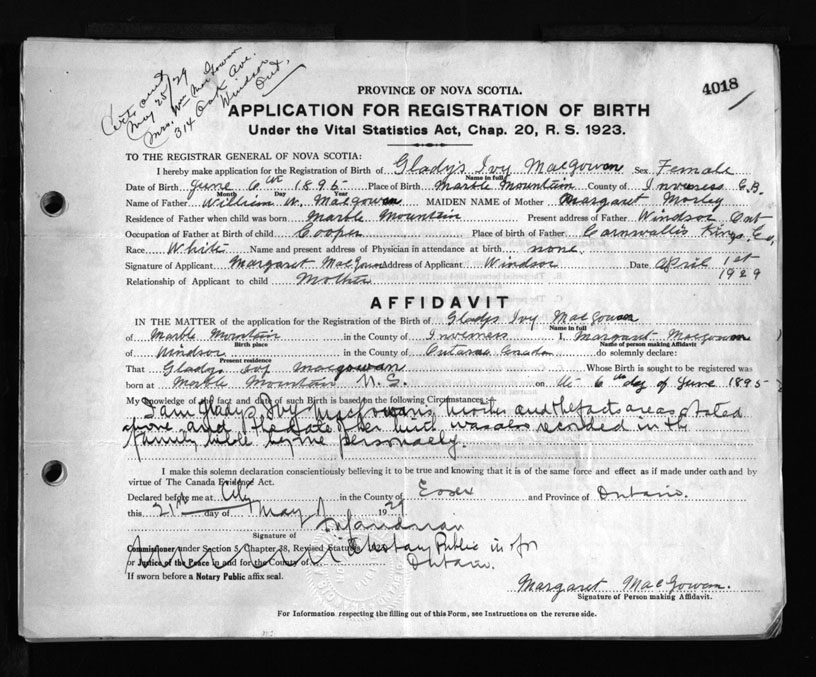 Cert. sent
May 25/29
Mrs. Wm MacGowan
314 Oak Ave.
Windsor
Ont.
4018
PROVINCE OF NOVA SCOTIA.
APPLICATION FOR REGISTRATION OF BIRTH
Under the Vital Statistics Act, Chap. 20, R. S. 1923.
TO THE REGISTRAR GENERAL OF NOVA SCOTIA:
I hereby make application for the Registration of Birth of Gladys Ivy MacGowan Sex Female
Name in full
Date of Birth June 6th 1895 Place of Birth Marble Mountain County of Inverness C.B.
Month Day Year
Name of Father William W. Macgowan MAIDEN NAME of Mother Margaret Morley
Residence of Father when child was born Marble Mountain Present address of Father Windsor Ont
Occupation of Father at Birth of child Cooper Place of birth of Father Cornwallis Kings Co,
Race White Name and present address of Physician in attendance at birth none.
Signature of Applicant Margaret MacGowan Address of Applicant Windsor Date April 1st
1929
Relationship of Applicant to child Mother
AFFIDAVIT
IN THE MATTER of the application for the Registration of the Birth of Gladys Ivy MacGowan
Name in full
of Marble Mountain in the County of Inverness I, Margaret Macgowan
Birth place Name of person making Affidavit
of Windsor in the County of Ontario Canada do solemnly declare:
Present residence
That Gladys Ivy Macgowan Whose Birth is sought to be registered was
born at Marble Mountain N.S. on the 6th day of June 1895
My knowledge of the fact and date of such Birth is based on the following Circumstances:
I am Gladys Ivy MacGowan's mother and the facts are as stated
above and the date of her birth was also recorded in the
family bible by me personally.
I make this solemn declaration conscientiously believing it to be true and knowing that it is of the same force and effect as if made under oath and by
virtue of The Canada Evidence Act.
Declared before me at City in the County of Essex and Province of Ontario.
this 21st day of May 1929
Signature of
Commissioner under Section 5, Chapter 38, Revised Statutes Notary Public in & for
or Justice of the Peace in and for the County of Ontario.
If sworn before a Notary Public affix seal.
Margaret MacGowan.
Signature of Person making Affidavit.
For Information respecting the filling out of this Form, see Instructions on the reverse side.